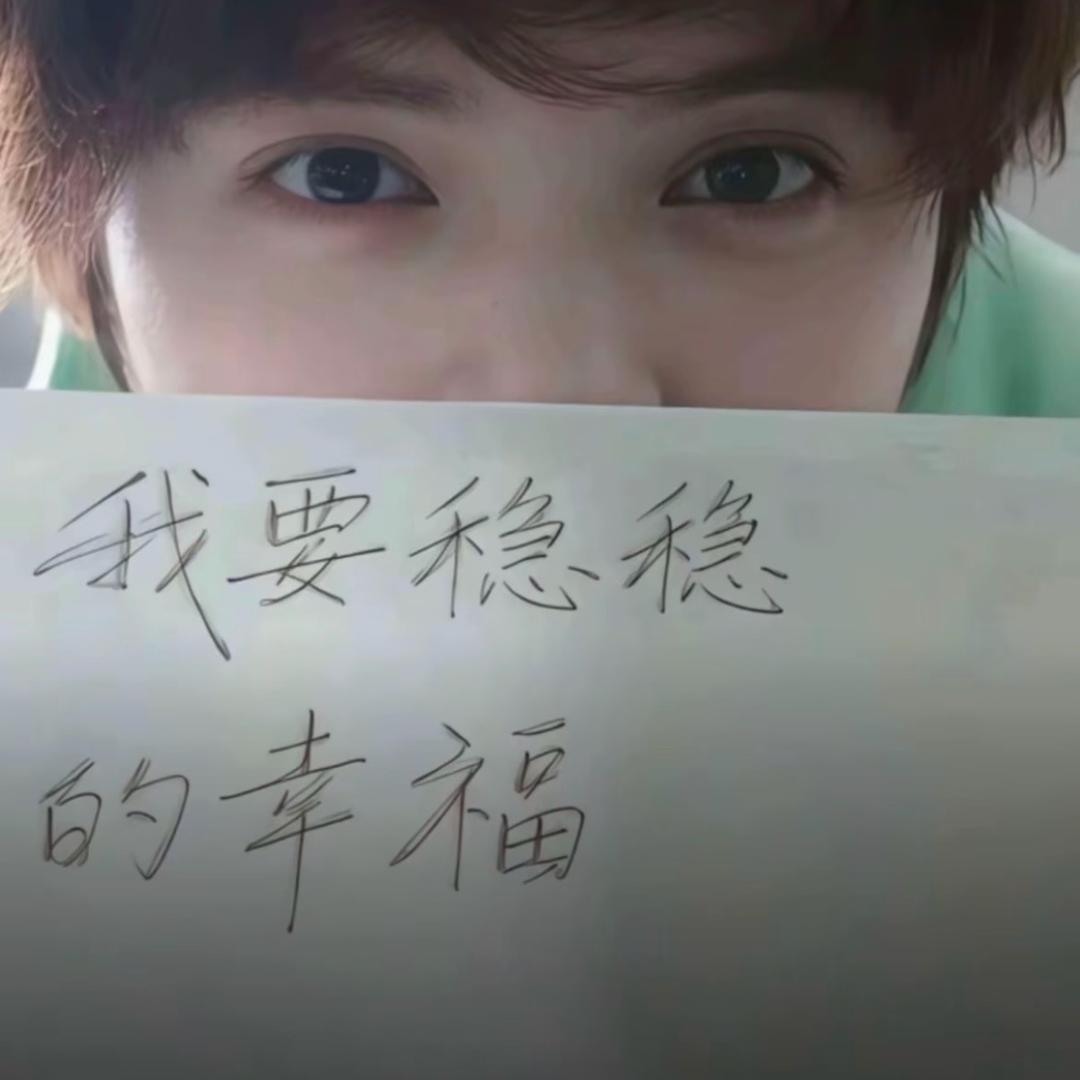 我要稳稳
的幸福